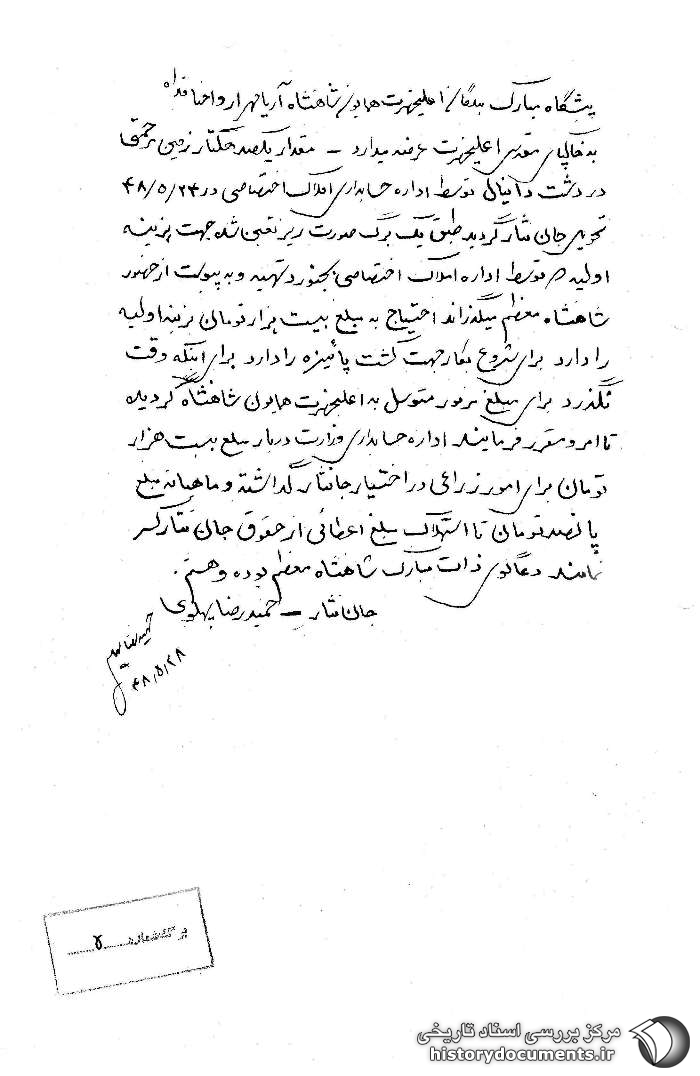 پیشگاه مبارک بندگان اعلیحضرت همایون شاهنشاه آریامهر ارواحنا فداه
به خاکپای مقدس اعلیحضرت عرضه میدارد – مقدار یکصد هکتار زمین مرحمتی
در دشت دانیال توسط اداره حسابداری املاک اختصاصی در ۴۸/۵/۲۴
تحویل جان نثار گردید طبق یک برگ صورت ریز تعیین شده جهت هزینه
اولیه که توسط اداره املاک اختصاصی بجنورد تهیه و به پیوست از حضور
شاهنشاه معظم میگذراند احتیاج به مبلغ بیست هزار تومان هزینه اولیه
را دارد برای شروع بکار جهت کشت پائیزه را دارد برای اینکه وقت
نگذرد برای مبلغ مزبور متوسل به اعلیحضرت همایون شاهنشاه گردیده
تا امر و مقرر فرمایند اداره حسابداری وزارت دربار مبلغ بیست هزار
تومان برای امور زراعی در اختیار جانثار گذاشته و ماهیانه مبلغ
پانصد تومان تا استهلاک مبلغ اعطائی از حقوق جان نثار کسر
نمایند دعاگوی ذات مبارک شاهنشاه معظم بوده و هستم.
جان نثار – حمیدرضا پهلوی
۴۸/۵/۲۸
برگ شماره ۸
مرکز بررسی اسناد تاریخی
historydocuments.ir